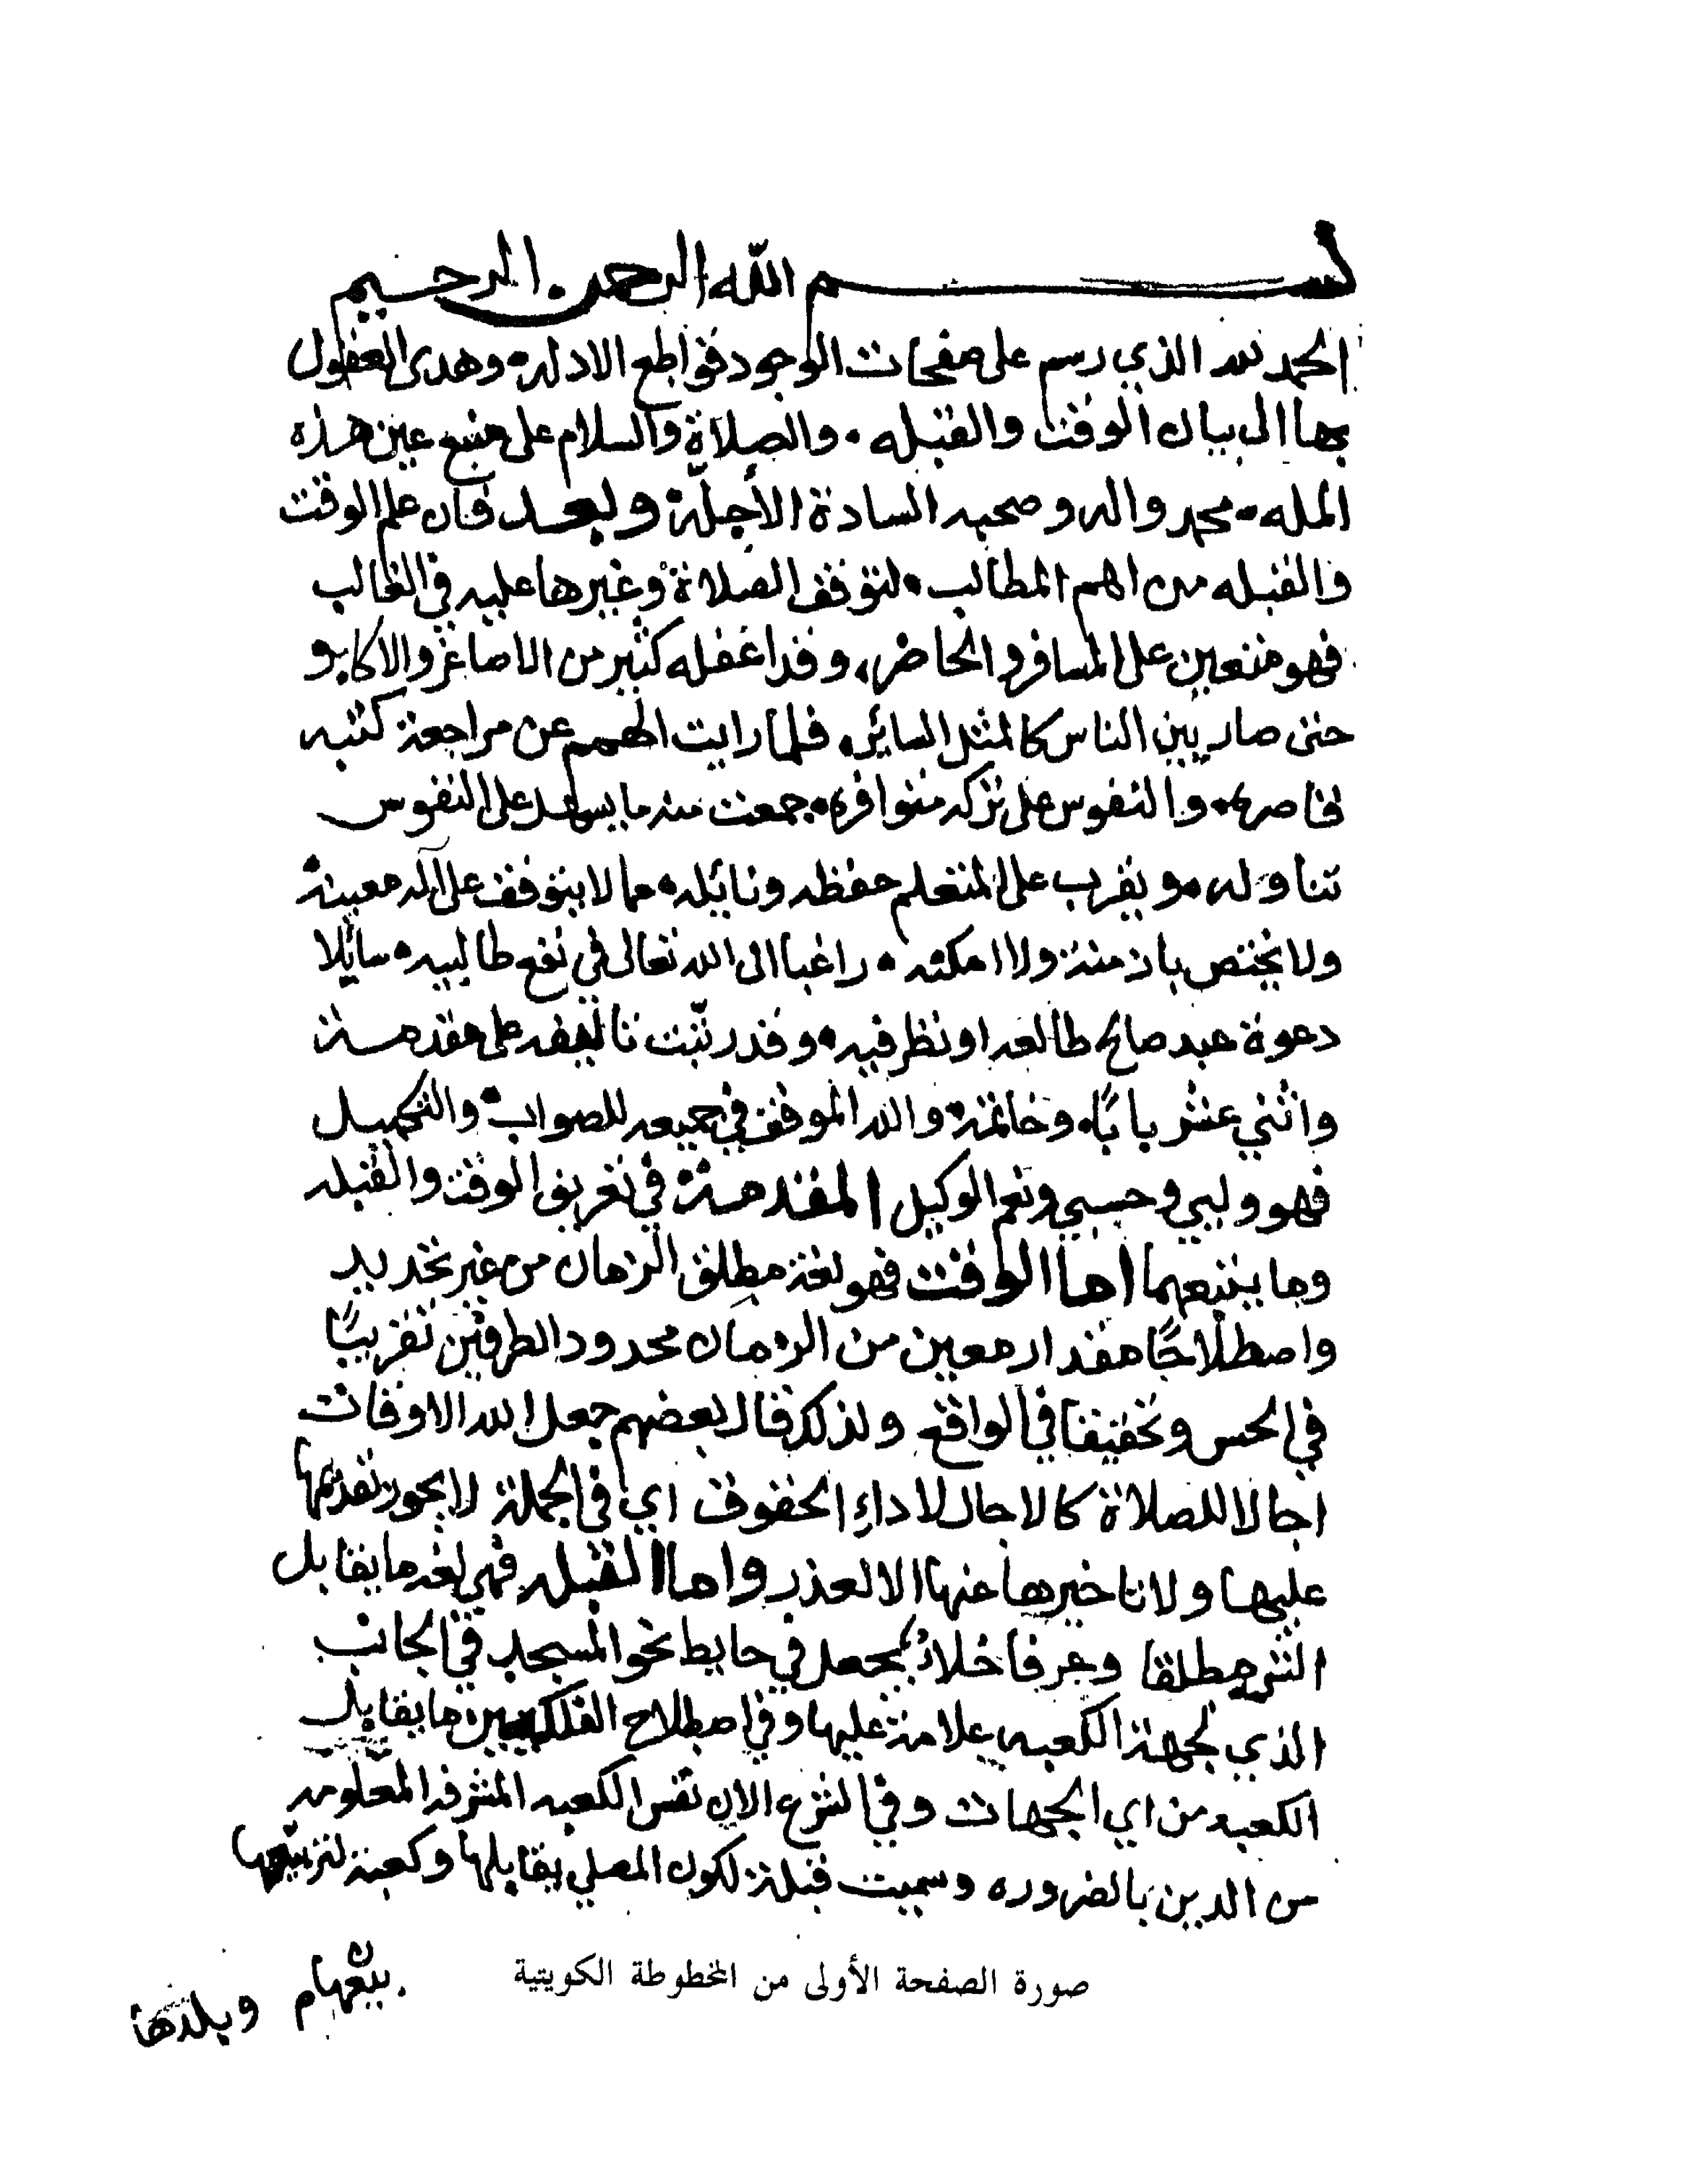 بسم الله الرحمن الرحيم
الحمد لله الذي رسم على صفحات الوجود قواطع الادله وهدى العقول
بها الى بيان الوقت والقبله والصلاة والسلام على منبع عين هذه
المله محمد واله وصحبه السادة الأجلة وبعد فان علم الوقت
والقبله من اهم المطالب لتوقف الصلاة وغيرها عليه في الغالب
فهو متعين على المسافر والحاضر وقد اغفله كثير من الاصاغر والاكابر
حتى صار بين الناس كالمثل السائر فلما رايت الهمم عن مراجعة كتبه
قاصره والنفوس على تركه متوافره جمعت منه ما يسهل على النفوس
تناوله ويقرب على المتعلم حفظه ونائله مما لا يتوقف على آله معينة
ولا يختص بازمنة ولا امكنه راغبا الى الله تعالى في نفع طالبيه سائلا
دعوة عبد صالح طالعه او نظر فيه وقد رتبت تاليفه على مقدمة
واثني عشر بابًا وخاتمة والله الموفق في جميعه للصواب والتكميل
فهو وليي وحسبي ونعم الوكيل المقدمة في تعريف الوقت والقبله
وما يتبعهما اما الوقت فهو لغة مطلق الزمان من غير تحديد
واصطلاحًا مقدار معين من الزمان محدود الطرفين تقريبًا
في الحس وتحقيقا في الواقع ولذلك قال بعضهم جعل الله الاوقات
اجالا للصلاة كالاجال لاداء الحقوق اي في الجملة لا يجوز تقديمها
عليها ولا تاخيرها عنها الا لعذر واما القبله فهي لغه ما يقابل
الشي مطلقا وعرفا خلاء يجعل في حايط نحو المسجد في الجانب
الذي لجهة الكعبه علامة عليها وفي اصطلاح الفلكيين ما يقابل
الكعبه من اي الجهات وفي الشرع الان نفس الكعبه المشرفه المعلومه
من الدين بالضروره وسميت قبلة لكون المصلي يقابلها وكعبة لتربيعها
صورة الصفحة الأولى من المخطوطة الكويتية